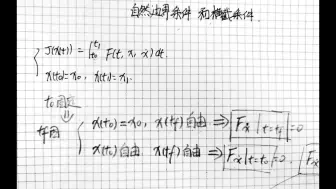 自然边界条件 和横截条件.
J(x(t)) = ∫_{t0}^{t1} F(t, x, ẋ) dt.
x(t0)=x0, x(t1)=x1.
t0固定
tf固 x(t0)=x0, x(tf)自由 ⇒ Fẋ|t=tf=0
x(t0)自由 x(tf)自由 ⇒ Fẋ|t=t0=0 .